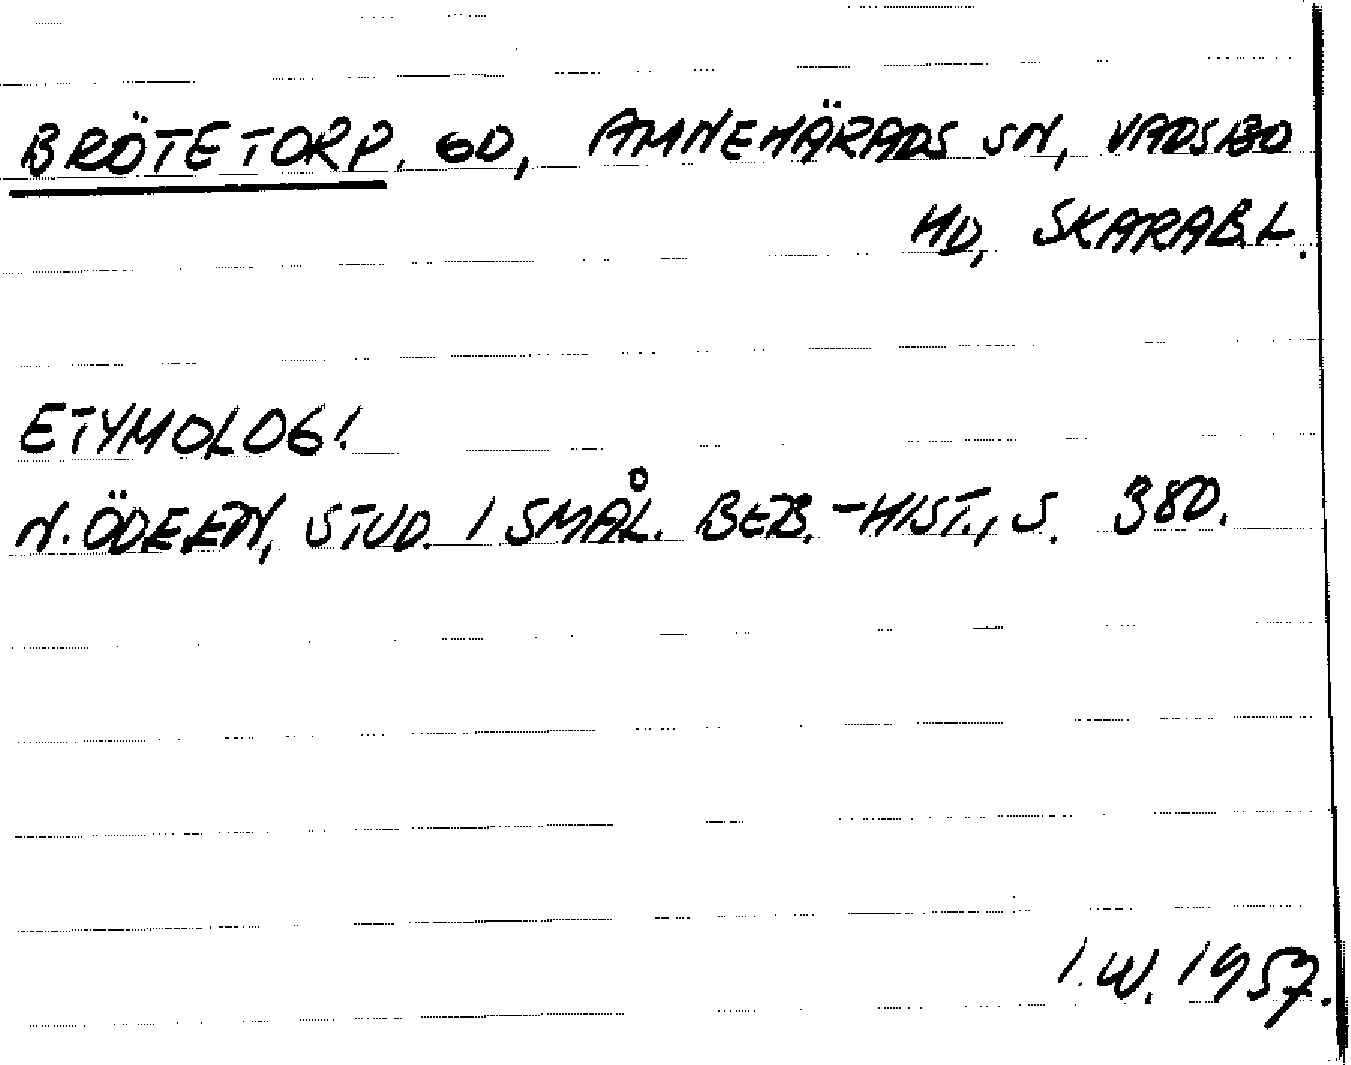 BRÖTETORP. GD, AMNEHÄRADS SN, VADSBO
HD, SKARAB.L.
ETYMOLOGI.
N. ÖDEEN, STUD. I SMÅL. BEB.-HIST., S. 380.
I.W. 1957.